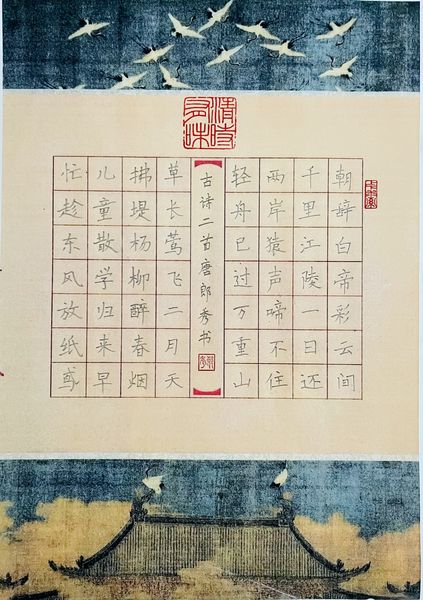 朝辞白帝彩云间
千里江陵一日还
两岸猿声啼不住
轻舟已过万重山
古诗二首唐郎秀书
草长莺飞二月天
拂堤杨柳醉春烟
儿童散学归来早
忙趁东风放纸鸢